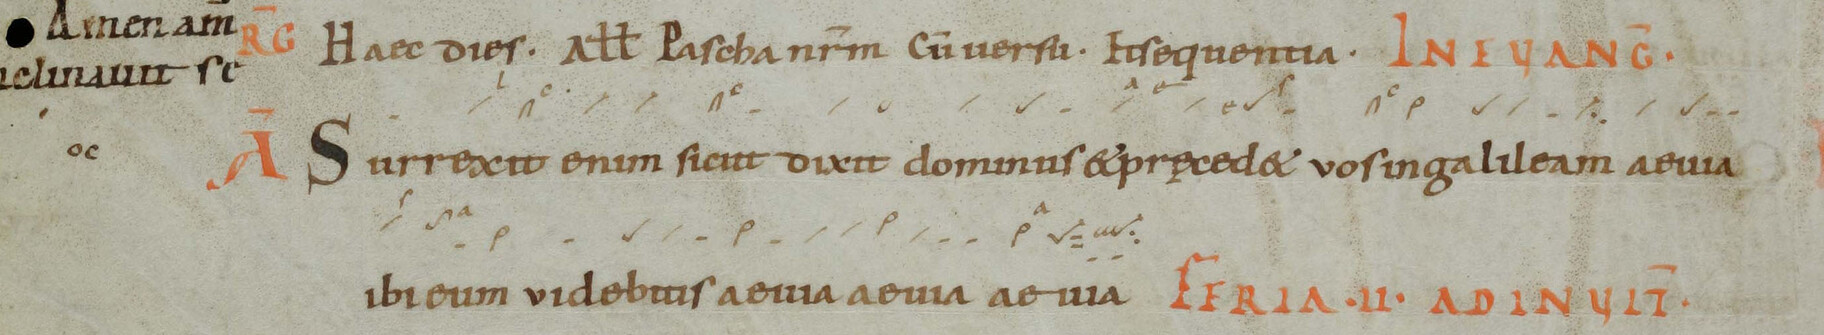 Amen am̄
nclinauit se
oc
R̄G Haec dies. Aƚƚ Pascha nr̄m Cū uersu. Et sequentia. IN EUANḠ.
Ā Surrexit enim sicut dixit dominus & pręced& vos in galileam aeuia
ibi eum videbitis aeuia aeuia aeuia FERIA .II. AD INUIT̄.